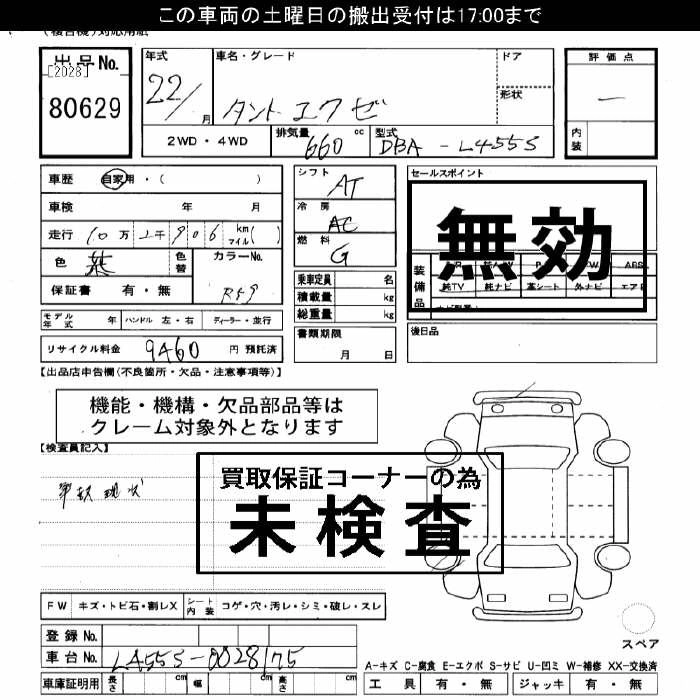 この車両の土曜日の搬出受付は17:00まで
(複合機)対応用紙
出品No.
[2028]
80629
年式
22/
月
車名・グレード
タント エクゼ
ドア
形状
評価点
—
内装
2WD・4WD
排気量
660
cc
型式
DBA-L455S
車歴
自家用・( )
車検 年 月
走行
10万2千906
km
マイル( )
色
紫
色替
カラーNo.
R59
保証書 有・無
シフト
AT
冷房
AC
燃料
G
乗車定員 名
積載量 kg
総重量 kg
セールスポイント
無効
装備品
ABS
純TV
純ナビ
革シート
外ナビ
モデル年式 年
ハンドル 左・右
ディーラー・並行
リサイクル料金
9460
円 預託済
書類期限
月 日
後日品
【出品店申告欄(不良箇所・欠品・注意事項等)】
機能・機構・欠品部品等は
クレーム対象外となります
【検査員記入】
事故現状
買取保証コーナーの為
未検査
FW
キズ・トビ石・割レX
シート内装
コゲ・穴・汚レ・シミ・破レ・スレ
登録No.
車台No.
L455S-0028175
車庫証明用
長さ
cm
幅
cm
高さ
cm
スペア
A-キズ C-腐食 E-エクボ S-サビ U-凹ミ W-補修 XX-交換済
工具 有・無
ジャッキ 有・無